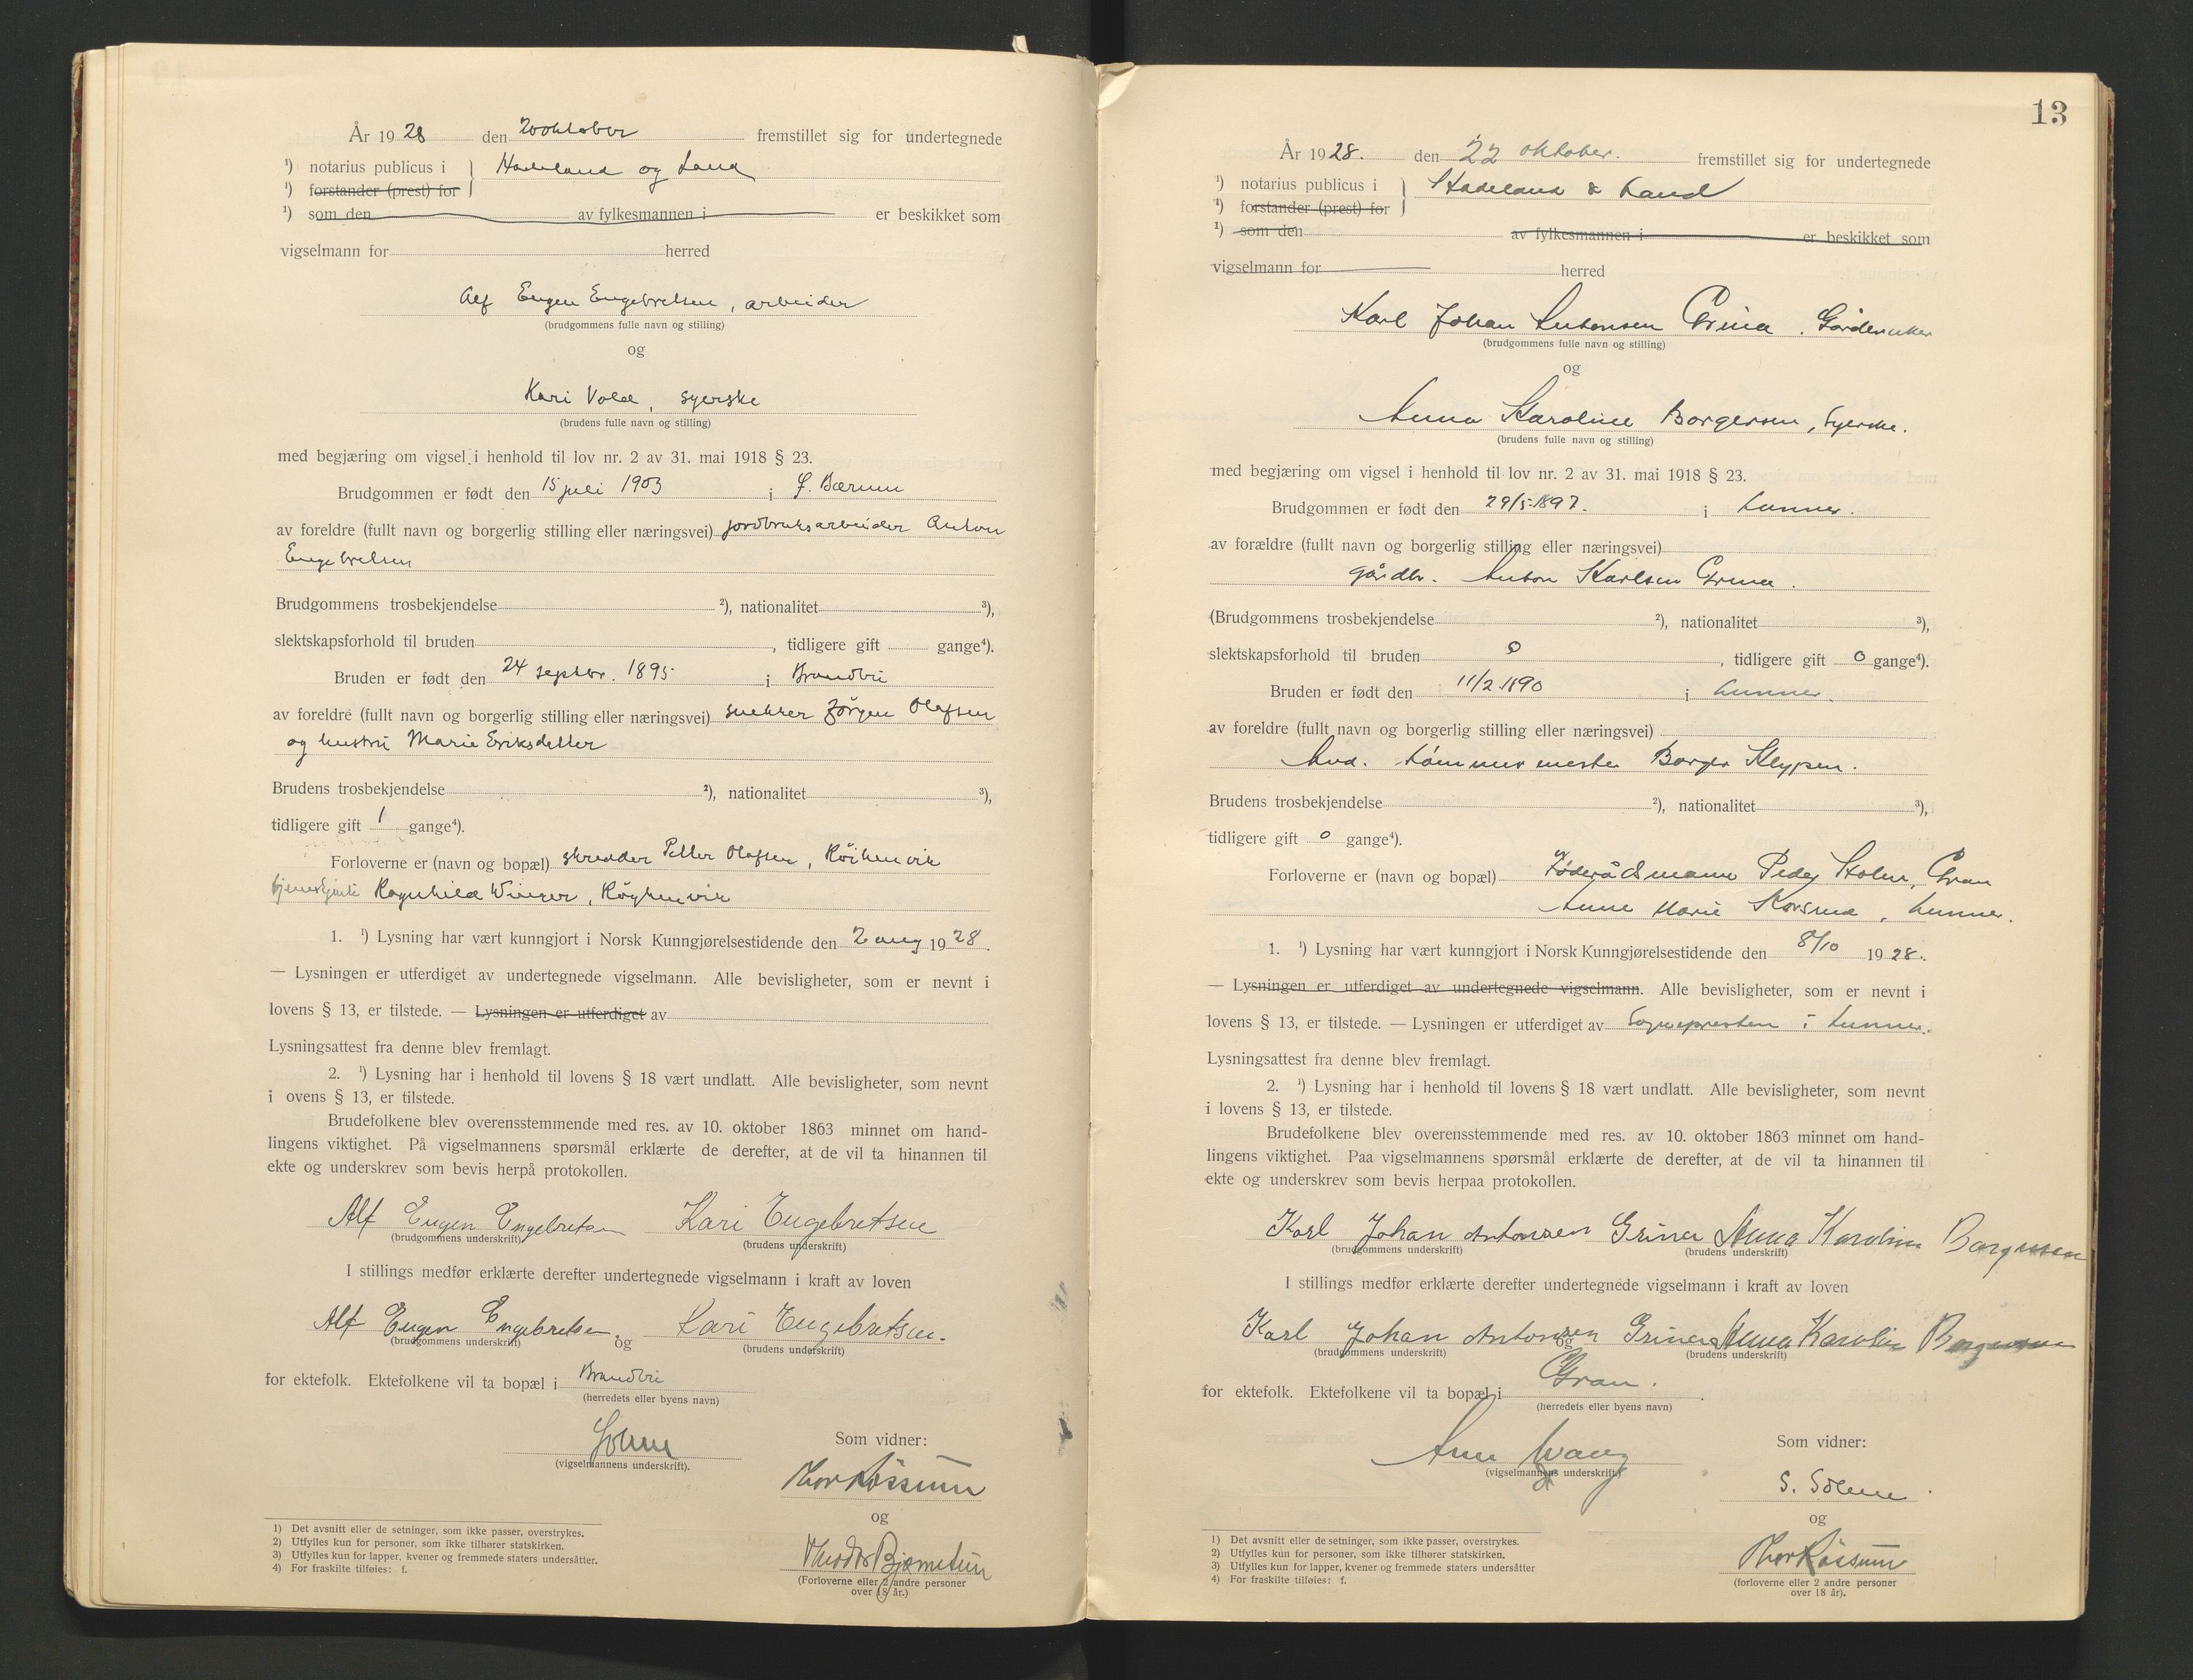 År 1928 den 20 oktober fremstillet sig for undertegnede
¹) notarius publicus i } Hadeland og Land
¹) forstander (prest) for
¹) som den av fylkesmannen i er beskikket som
vigselmann for herred
Alf Eugen Engebretsen, arbeider
(brudgommens fulle navn og stilling)
og
Kari Vold, syerske
(brudens fulle navn og stilling)
med begjæring om vigsel i henhold til lov nr. 2 av 31. mai 1918 § 23.
Brudgommen er født den 15 juli 1903 i Ø. Bærum
av foreldre (fullt navn og borgerlig stilling eller næringsvei) jordbruksarbeider Anton
Engebretsen
Brudgommens trosbekjendelse ²), nationalitet ³),
slektskapsforhold til bruden , tidligere gift gange⁴).
Bruden er født den 24 septbr. 1895 i Brandbu
av foreldre (fullt navn og borgerlig stilling eller næringsvei) snekker Jörgen Olafsen
og hustru Marie Eriksdatter
Brudens trosbekjendelse ²), nationalitet ³),
tidligere gift 1 gange⁴).
Forloverne er (navn og bopæl) skredder Petter Olafsen, Röikenvik
tjenestjente Ragnhild Winger, Röykenvik
1. ¹) Lysning har vært kunngjort i Norsk Kunngjørelsestidende den 2 aug 1928.
— Lysningen er utferdiget av undertegnede vigselmann. Alle bevisligheter, som er nevnt i
lovens § 13, er tilstede. — Lysningen er utferdiget av
Lysningsattest fra denne blev fremlagt.
2. ¹) Lysning har i henhold til lovens § 18 vært undlatt. Alle bevisligheter, som nevnt
i ovens § 13, er tilstede.
Brudefolkene blev overensstemmende med res. av 10. oktober 1863 minnet om hand-
lingens viktighet. På vigselmannens spørsmål erklærte de derefter, at de vil ta hinannen til
ekte og underskrev som bevis herpå protokollen.
Alf Eugen Engebretsen Kari Engebretsen
(brudgommens underskrift) (brudens underskrift)
I stillings medfør erklærte derefter undertegnede vigselmann i kraft av loven
Alf Eugen Engebretsen og Kari Engebretsen.
(brudgommens underskrift) (brudens underskrift)
for ektefolk. Ektefolkene vil ta bopæl i Brandbu
(herredets eller byens navn)
Sölme
(vigselmannens underskrift).
Som vidner:
Thor Rössum
og
Theodor Bjørnetun
(Forloverne eller 2 andre personer
over 18 år.)
1) Det avsnitt eller de setninger, som ikke passer, overstrykes.
2) Utfylles kun for personer, som ikke tilhører statskirken.
3) Utfylles kun for lapper, kvener og fremmede staters undersåtter.
4) For fraskilte tilføies: f.
13
År 1928. den 22 oktober. fremstillet sig for undertegnede
¹) notarius publicus i } Hadeland & Land
¹) forstander (prest) for
¹) som den av fylkesmannen i er beskikket som
vigselmann for herred
Karl Johan Antonsen Grina. Gårdbruker
(brudgommens fulle navn og stilling)
og
Anna Karoline Borgersen, Syerske.
(brudens fulle navn og stilling)
med begjæring om vigsel i henhold til lov nr. 2 av 31. mai 1918 § 23.
Brudgommen er født den 29/5 1897. i Lunner.
av forældre (fullt navn og borgerlig stilling eller næringsvei)
gårdbr. Anton Karlsen Grina.
(Brudgommens trosbekjendelse ²), nationalitet ³),
slektskapsforhold til bruden 0 , tidligere gift 0 gange⁴).
Bruden er født den 11/2 1890 i Lunner.
av foreldre (fullt navn og borgerlig stilling eller næringsvei)
Avd. tömmermester Borger Klypen.
Brudens trosbekjendelse ²), nationalitet ³),
tidligere gift 0 gange⁴).
Forloverne er (navn og bopæl) Föderådsmann Peder Stolen, Gran
Anne Marie Korsrud, Lunner.
1. ¹) Lysning har vært kunngjort i Norsk Kunngjørelsestidende den 8/10 1928.
— Lysningen er utferdiget av undertegnede vigselmann. Alle bevisligheter, som er nevnt i
lovens § 13, er tilstede. — Lysningen er utferdiget av Sognepresten i Lunner.
Lysningsattest fra denne blev fremlagt.
2. ¹) Lysning har i henhold til lovens § 18 vært undlatt. Alle bevisligheter, som nevnt
i lovens § 13, er tilstede.
Brudefolkene blev overensstemmende med res. av 10. oktober 1863 minnet om hand-
lingens viktighet. Paa vigselmannens spørsmål erklærte de derefter, at de vil ta hinannen til
ekte og underskrev som bevis herpaa protokollen.
Karl Johan Antonsen Grina Anna Karoline Borgersen
(brudgommens underskrift) (brudens underskrift)
I stillings medfør erklærte derefter undertegnede vigselmann i kraft av loven
Karl Johan Antonsen Grina og Anna Karoline Borgersen
(brudgommens underskrift) (brudens underskrift)
for ektefolk. Ektefolkene vil ta bopæl i Gran.
(herredets eller byens navn)
Arne Wang
(vigselmannens underskrift)
Som vidner:
S. Sölme
og
Thor Rössum
(forloverne eller 2 andre personer
over 18 år).
1) Det avsnitt eller de setninger, som ikke passer, overstrykes.
2) Utfylles kun for personer, som ikke tilhører statskirken.
3) Utfylles kun for lapper, kvener og fremmede staters undersåtter
4) For fraskilte tilføies: f.